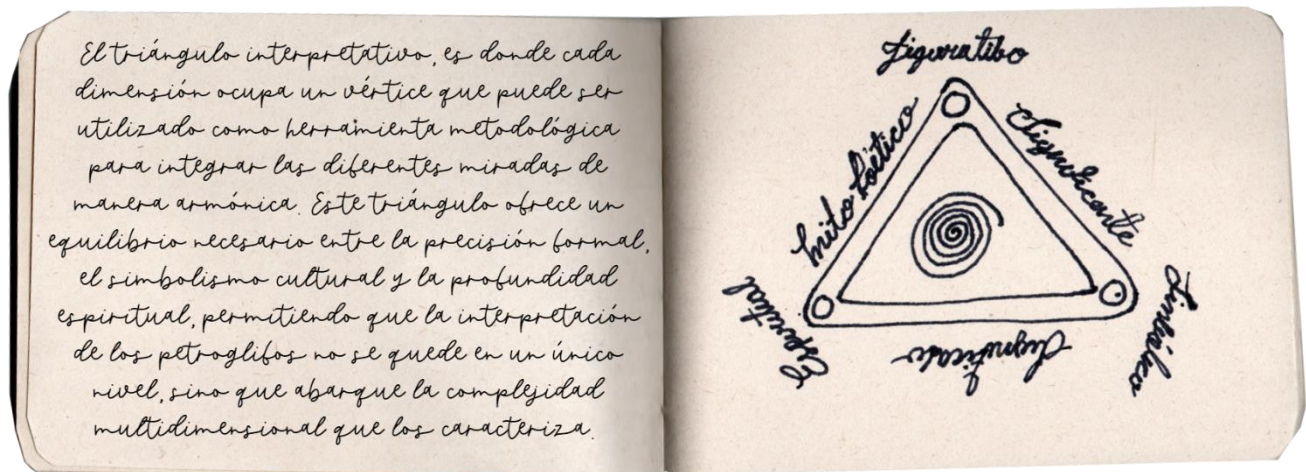 El triángulo interpretativo, es donde cada
dimensión ocupa un vértice que puede ser
utilizado como herramienta metodológica
para integrar las diferentes miradas de
manera armónica. Este triángulo ofrece un
equilibrio necesario entre la precisión formal,
el simbolismo cultural y la profundidad
espiritual, permitiendo que la interpretación
de los petroglifos no se quede en un único
nivel, sino que abarque la complejidad
multidimensional que los caracteriza.
Figuratibo
mito Poético
Significante
Espiritual
Significado
Simbólico